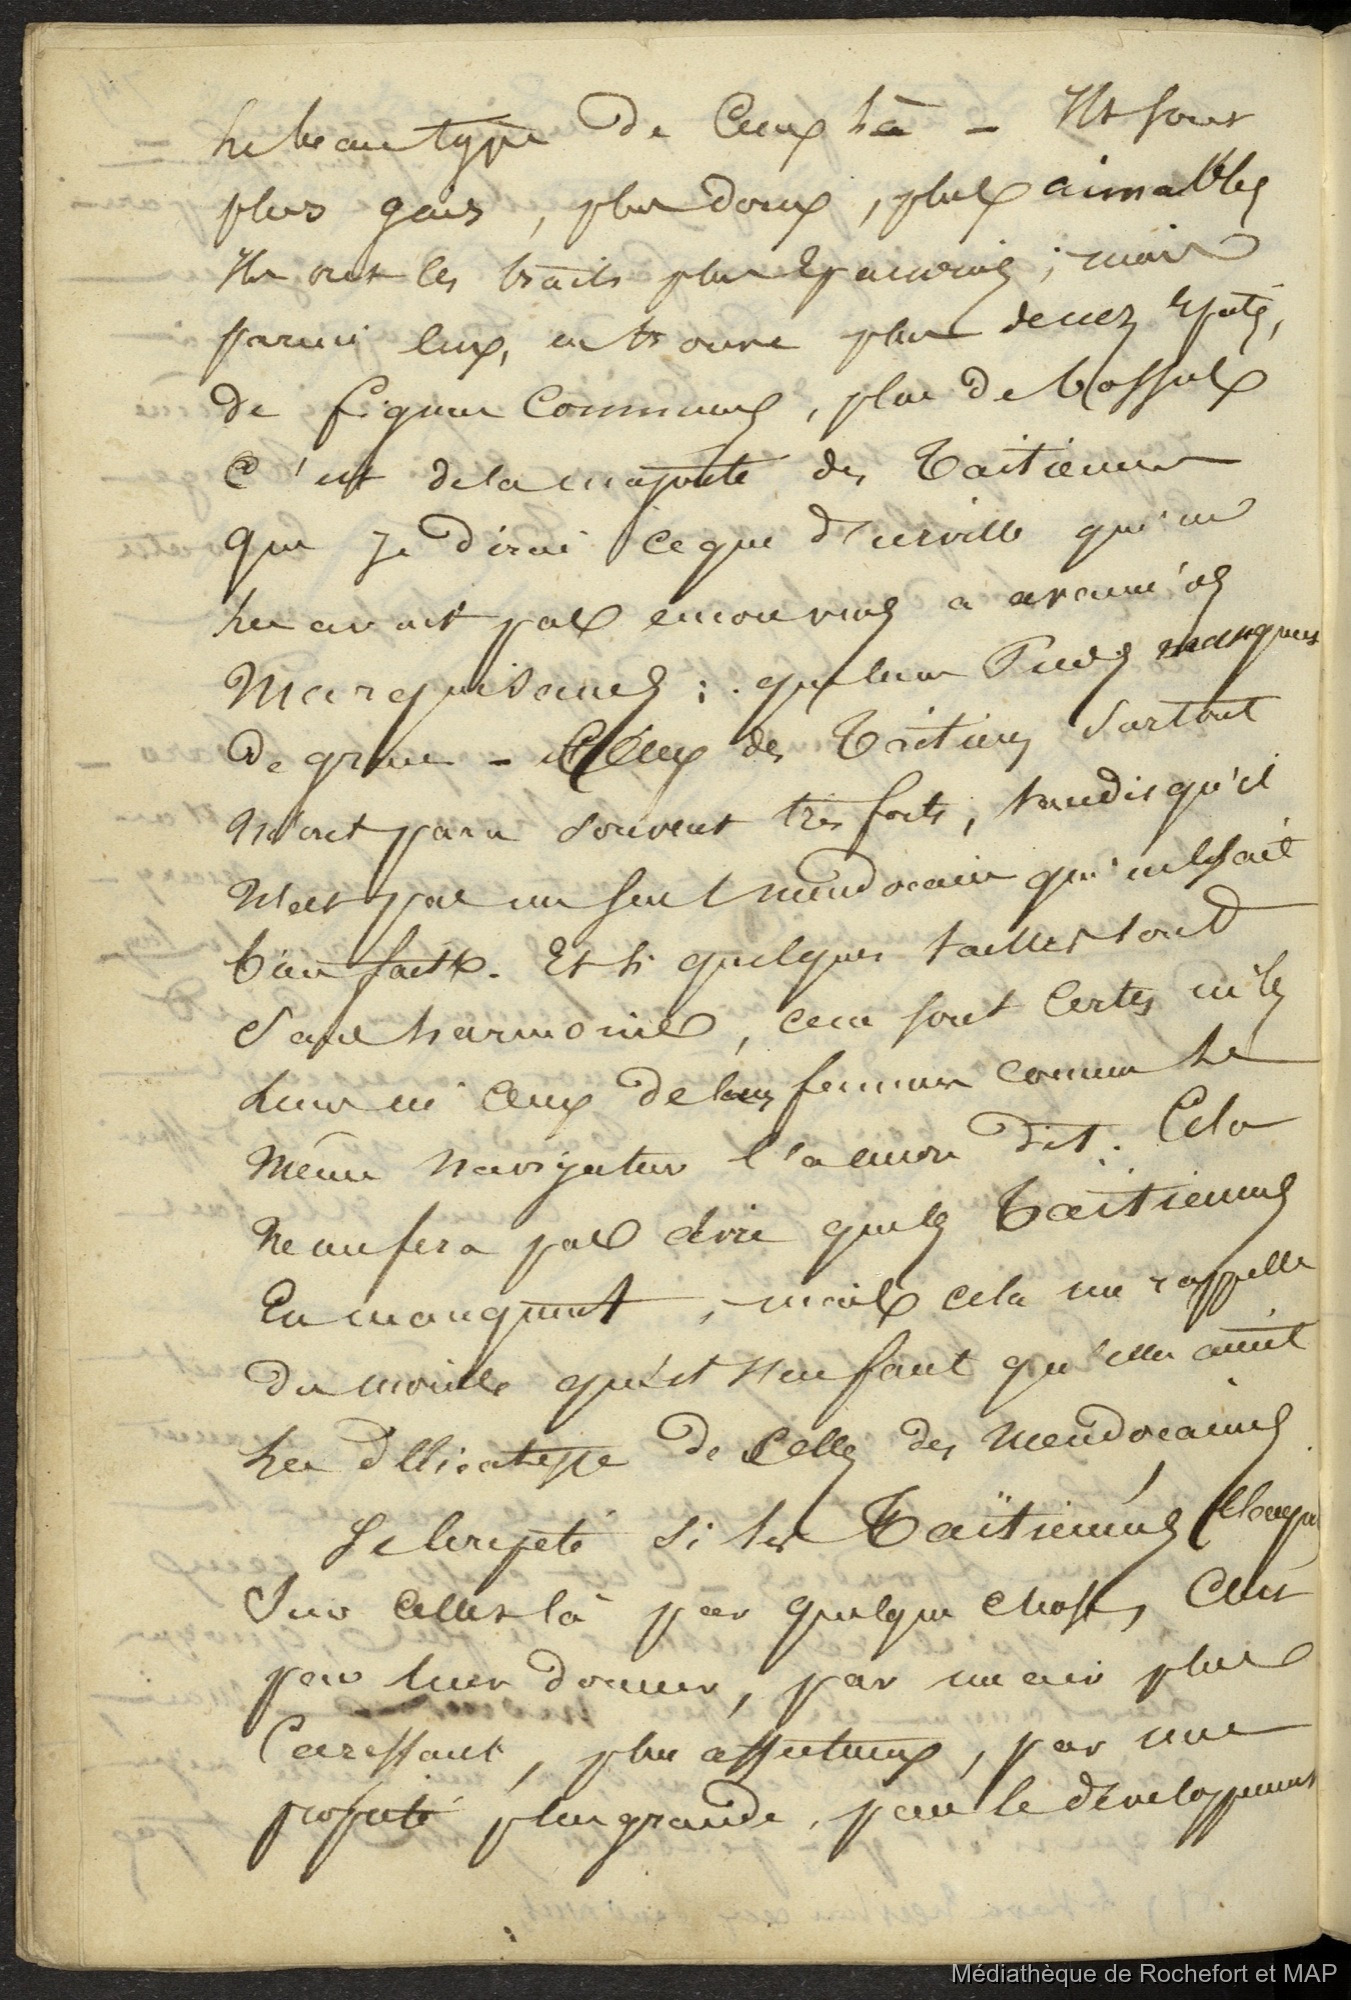 le beau type de ceux là - Ils sont
plus gais, plus doux, plus aimables
Ils ont les traits plus épanouis ; mais
parmi eux, on trouve plus de nez épatés,
de figures communes, plus de bossus
C'est de la majorité des Taïtiennes
que je dirai ce que d'Urville qui ne
les avait pas encore vues a avancé des
Marquisanes : que leurs pieds manquent
de grace - Ceux des Taïtiens surtout
m'ont paru souvent très forts, tandis qu'il
n'est pas un seul mendocain qui ne les ait
bien faits. Et si quelques tailles sont
sans harmonie, ce ne sont certes ni les
leurs ni ceux de leurs femmes comme le
même navigateur l'a encore dit. Cela
ne me fera pas dire que les Taïtiennes
en manquent, mais cela me rappelle
du moins qu'il s'en faut qu'elles aient
la délicatesse de celles des mendocaines
Je le répète si les Taïtiennes
sur celles là par quelque chose, c'est
par leur douceur, par un air plus
caressant, plus affectueux, par une
propreté plus grande, par le développement
Médiathèque de Rochefort et MAP